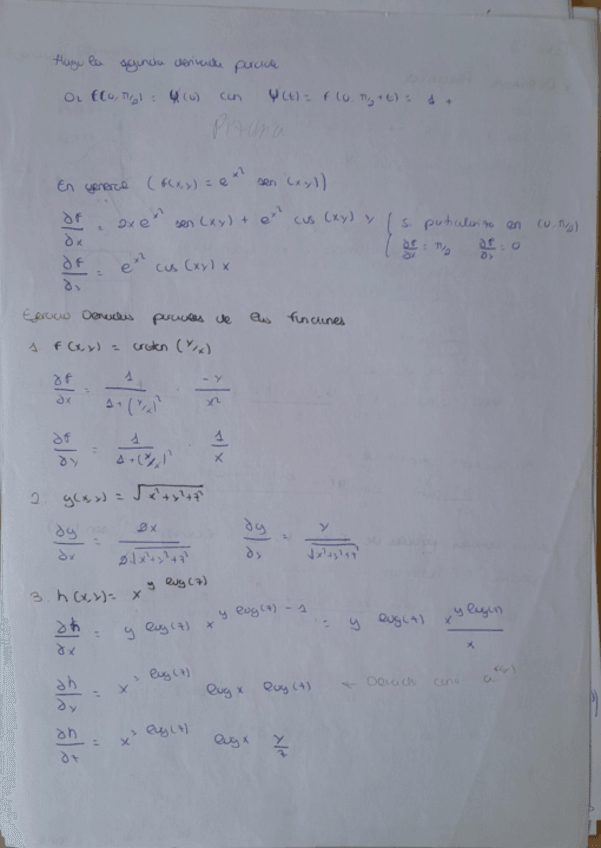 Hago la segunda derivada parcial
D₂ f(0, π/2) = Ψ'(0) con Ψ(t) = f(0, π/2 + t) = 1
En general (f(x,y) = e^{x²} sen (xy))
∂f/∂x = 2x e^{x²} sen (xy) + e^{x²} cos (xy) y { Si particularizo en (0, π/2)
∂f/∂x = π/2 ∂f/∂y = 0
∂f/∂y = e^{x²} cos (xy) x
Ejercicio Derivadas parciales de las funciones
1. f(x,y) = arctan (y/x)
∂f/∂x = 1/(1+(y/x)²) · -y/x²
∂f/∂y = 1/(1+(y/x)²) · 1/x
2. g(x,y) = √(x²+y²+z²)
∂g/∂x = 2x/(2√(x²+y²+z²)) ∂g/∂y = y/√(x²+y²+z²)
3. h(x,y) = x^{y log(z)}
∂h/∂x = y log(z) x^{y log(z) - 1} = y log(z) x^{y log(z)}/x
∂h/∂y = x^{y log(z)} log x log(z) ←
∂h/∂z = x^{y log(z)} log x y/z